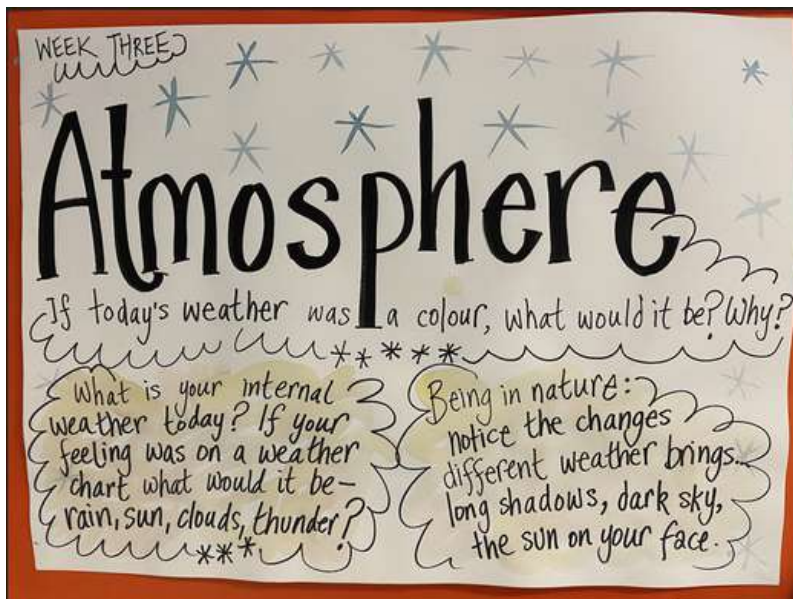 WEEK THREE
Atmosphere
If today's weather was a colour, what would it be? Why?
What is your internal
weather today? If your
feeling was on a weather
chart what would it be-
rain, sun, clouds, thunder?
Being in nature:
notice the changes
different weather brings...
long shadows, dark sky,
the sun on your face.